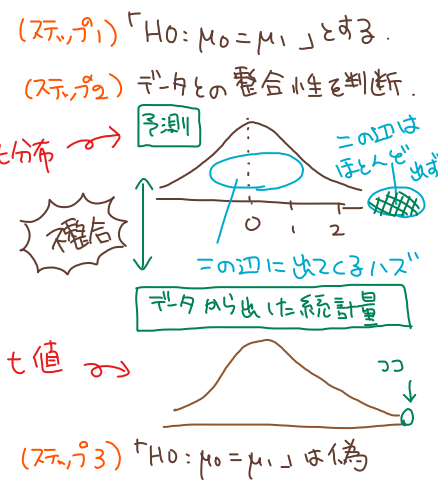 (ステップ1)「H0:μ0=μ1」とする.
(ステップ2)データとの整合性を判断.
予測
t分布
この辺は
ほとんど出ず
不整合
0 1 2
この辺に出てくるハズ
データから出した統計量
t値
ココ
(ステップ3)「H0:μ0=μ1」は偽